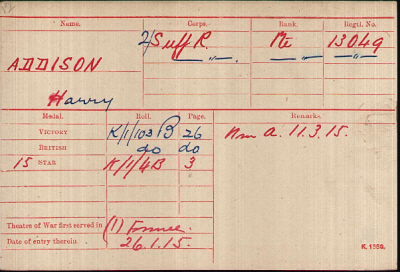 Name. Corps. Rank. Regtl. No.
2/Suff R. Pte 13049
ADDISON —„— —„— —„—
Harry
Medal. Roll. Page. Remarks.
VICTORY K/1/103 B 26
BRITISH do do
15 STAR K/1/4B 3
A. 11.3.15.
Theatre of War first served in (1) France
Date of entry therein 26.1.15.
K. 1380.